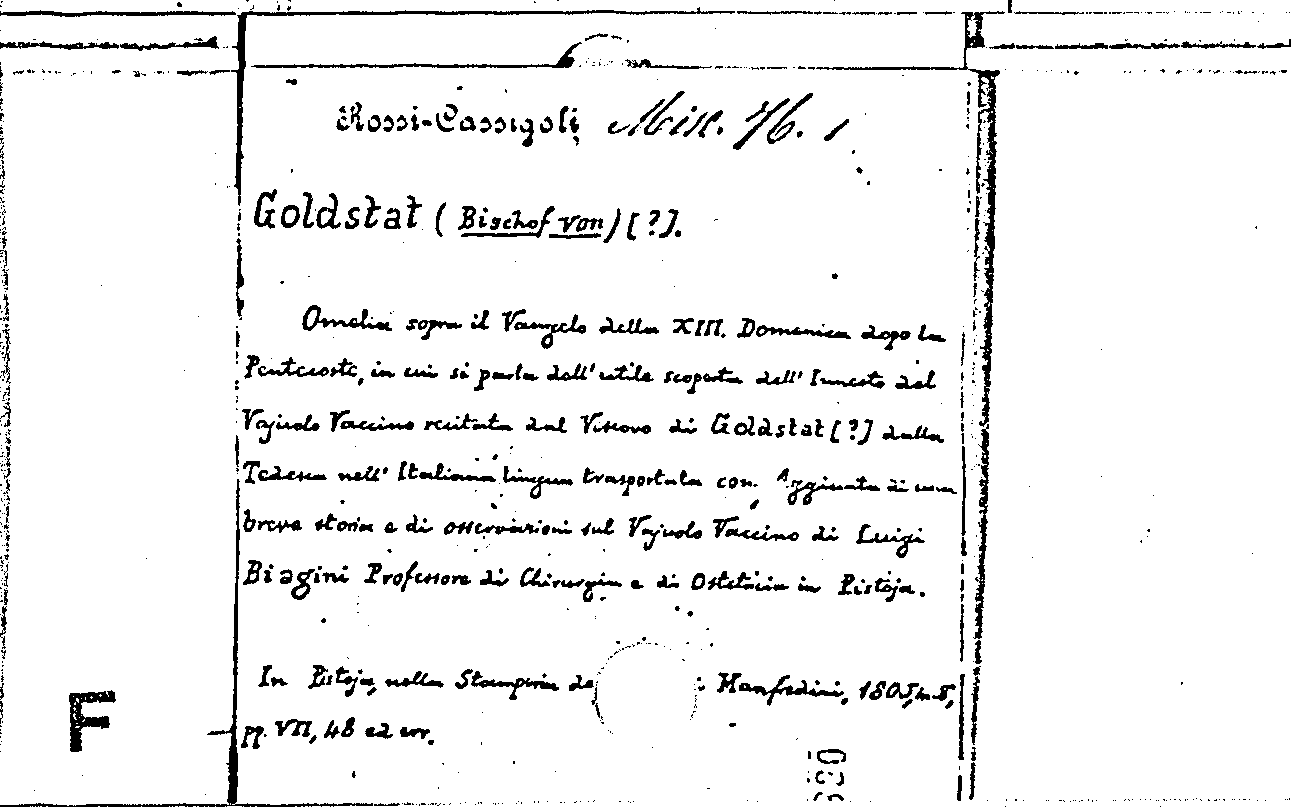 Rossi-Cassigoli Misc. 76. 1
Goldstat (Bischof von) [?].
Omelia sopra il Vangelo della XIII. Domenica dopo la
Pentecoste, in cui si parla dell'utile scoperta dell'Innesto del
Vajuolo Vaccino recitata dal Vescovo di Goldstat [?] dalla
Tedesca nell'Italiana lingua trasportata con Aggiunta di una
breve storia e di osservazioni sul Vajuolo Vaccino di Luigi
Biagini Professore di Chirurgia e di Ostetricia in Pistoja.
In Pistoja, nella Stamperia de Manfredini, 1805, in-8,
pp. VII, 48 ed err.
F